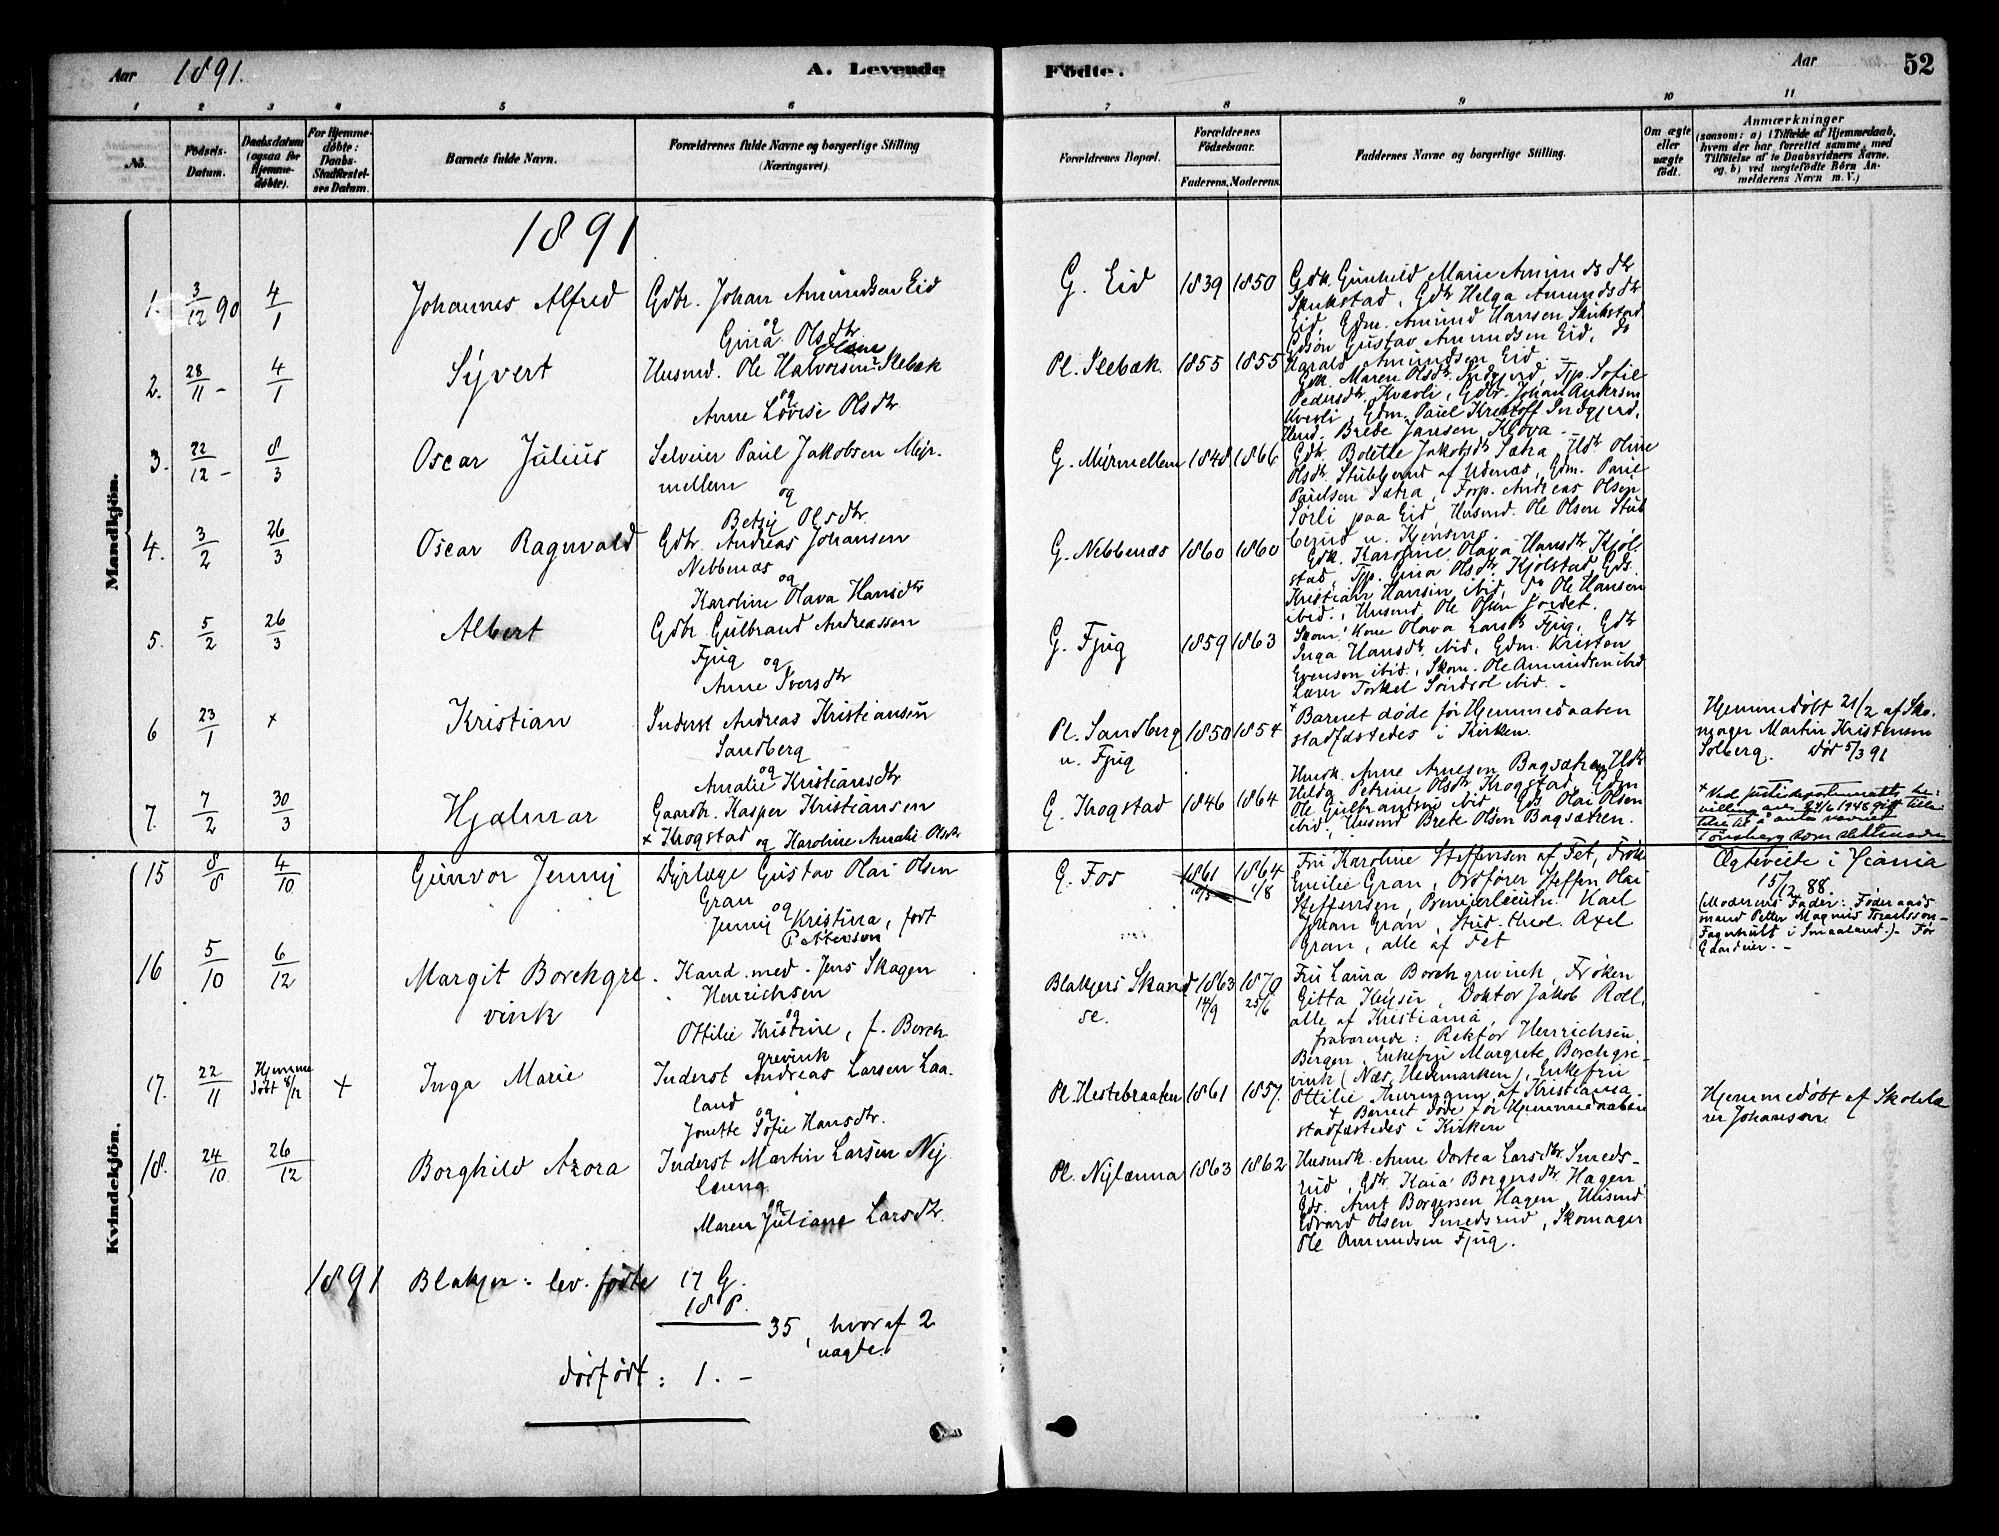 Aar 1891. A. Levende Födte. Aar 52
1 2 3 4 5 6 7 8 9 10 11
No. Födsels-Datum. Daabsdatum (ogsaa for Hjemmedøbte). For Hjemmedøbte: Daabs-Stadfæstelses Datum. Barnets fulde Navn. Forældrenes fulde Navne og borgerlige Stilling (Næringsvei). Forældrenes Bopæl. Forældrenes Födselsaar. Faderens. Moderens. Faddernes Navne og borgerlige Stilling. Om ægte eller uægte födt. Anmærkninger
(saasom: a) i Tilfælde af Hjemmedaab,
hvem der har forrettet samme, med
Tilföielse af to Daabsvidners Navne,
og b) ved uægtefödte Börn An-
melderens Navn m. V.)
Mandkjön.
1891
1. 3/12 90 4/1 Johannes Alfred
Gdbr. Johan Amundsen Eid
og
Gina Olsdtr.
G. Eid 1839 1850
Gdk. Gunhild Marie Amundsdtr
Skukstad, Gdtr Helga Amundsdtr
Eid, Gdm. Amund Hansen Skukstad
Gdsøn Gustav Amundsen Eid, do
Harald Amundsen Eid. -
2. 28/11 - 4/1 Syvert
Husmd. Ole Halvorsen Ilebæk
og
Anne Lovise Olsdtr.
Pl. Ilebæk. 1855 1855
Gdk. Maren Olsdtr. , Tjp. Sofie
Pedersdtr. Kvævli, Gdbr. Johan Andersen
Kvevli, Gdm. Paul Kristoff
Husd. Brede Jansen Kløva -
3. 22/12 - 8/3 Oscar Julius
Selveier Paul Jakobsen Myr-
mellem
og
Betsy Olsdtr.
G. Myrmellem 1848 1866
Gdtr. Bolette Jakobsdtr Sætra, Hdtr Oline
Olsdtr. Stubberud af Udenæs, Gdm. Paul
Paulsen Sætra, Forp. Andreas Olsen
Sørli paa Eid, Husmd. Ole Olsen Stub
berud u.
4. 3/2 26/3 Oscar Ragnvald
Gdbr. Andreas Johansen
Nebbenæs
og
Karoline Olava Hansdtr
G. Nebbenæs 1860 1860
Gdk. Karoline Olava Hansdtr Kjøl
stad, Tjp. Gina Olsdtr. Kjølstad, Gds.
Kristian Hansen ibid, do Ole Hansen
ibid., Husmd. Ole Olsen Jordet.
5. 5/2 26/3 Albert
Gdbr. Gulbrand Andreassen
Fjug og
Anne Iversdtr
G. Fjug 1859 1863
Skom. Kone Olava Larsdtr Fjug, Gdtr
Inga Hansdtr. ibid, Gdm. Kristen
Evensen ibid., Skom. Ole Amundsen ibid
Lærer Torkel Søndsol ibid. -
6 23/1 + Kristian
Inderst Andreas Kristiansen
Sandberg
og
Amalie Kristiansdtr
Pl. Sandberg 1850 1854
u. Fjug
+ Barnet døde før Hjemmedaaben
stadfæstedes i Kirken.
Hjemmedøbt 21/2 af Sko-
mager Martin Kristensen
Solberg. Død 5/3 91
7. 7/2 30/3 Hjalmar
Gaardbr. Kasper Kristiansen
+ Krogstad og Karoline Amalie Olsdtr
G. Krogstad 1846 1864
Husk. Anne Arnesen Bagsætren, Hdtr
Helda Petrine Olsdtr. Krogstad, Gdm
Ole Gulbrandsen ibid., Gds Olai Olsen
ibid., Husmd Brete Olsen Bagsætren.
+ Ved Justisdepartementets be-
villing av 24/6 1948 gitt tilla-
telse til å anta navnet
Tönsberg som slektsnavn
Kvindekjön.
15 8/8 4/10 Gunvor Jenny
Dyrlæge Gustav Olai Olsen
Gran
og
Jenny Kristina, født
Petterson
G. Fos 1861 1864
10/5 1/8
Fru Karoline Steffensen af Fet, Frøk.
Emilie Gran, Ordfører Steffen Olai
Steffensen, Premierleutn. Karl
Johan Gran, Stud. theol. Axel
Gran, alle af Fet
Ægteviede i Xiania
15/12 88.
(Moderens Fader: Föderaads
mand Petter Magnus Isaksson -
Fagerhult i Smaaland.) -
16 5/10 6/12 Margit Borchgre
vink
Kand. med. Jens Skagen
Henrichsen
og
Ottilie Kristine, f. Borch
grevink
Blakjers Skand 1863 1870
se. 14/9 25/6
Fru Laura Borchgrevink, Frøken
Gitta Keyser, Doktor Jakob Roll,
alle af Kristiania
fraværende: Rektor Henrichsen,
Bergen, Enkefru Margrete Borchgre-
vink (Næs, Hedemarken), Enkefru
Ottilie af Kristiania.
17. 22/11 Hjemme
døbt 8/12 + Inga Marie
Inderst Andreas Larsen Laa-
land
og
Jonette Sofie Hansdtr.
Pl. Hestebraaten 1861 1857.
+ Barnet døde før Hjemmedaaben
stadfæstedes i Kirken
Hjemmedøbt af Skolelæ
rer Johansen.
18. 24/10 26/12 Borghild Azora
Inderst Martin Larsen Ny
lænna
og
Maren Juliane Larsdtr.
Pl. Nylænna 1863 1862
Husmdk. Anne Dortea Larsdtr. Smeds-
rud, Gdtr. Kaia Borgersdtr. Hagen,
Gds. Amt Borgersen Hagen, Husmd.
Edvard Olsen Smedsrud, Skomager
Ole Amundsen Fjug.
1891 Blakjer: lev. fødte 17 G.
18 P.
35, hvoraf 2
uægte.
dødfødt: 1. -